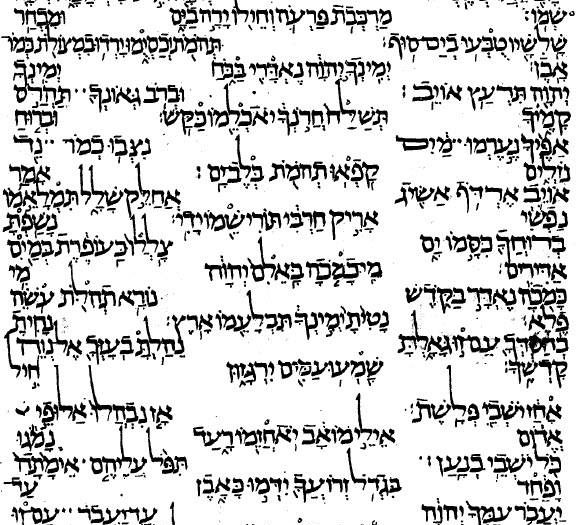 שמו: מרכבת פרעה וחילו ירה בים ומבחר
שלשיו טבעו בים סוף: תהמת יכסימו ירדו במצולת כמו
אבן: ימינך יהוה נאדרי בכח ימינך
יהוה תרעץ אויב: וברב גאונך תהרס
קמיך תשלח חרנך יאכלמו כקש: וברוח
אפיך נערמו מים נצבו כמו נד
נזלים קפאו תהמת בלב ים: אמר
אויב ארדף אשיג אחלק שלל תמלאמו
נפשי אריק חרבי תורישמו ידי: נשפת
ברוחך כסמו ים צללו כעופרת במים
אדירים: מי כמכה באלם יהוה מי
כמכה נאדר בקדש נורא תהלת עשה
פלא נטית ימינך תבלעמו ארץ: נחית
בחסדך עם זו גאלת נהלת בעזך אל נוה
קדשך: שמעו עמים ירגזון חיל
אחז ישבי פלשת: אז נבהלו אלופי
אדום אילי מואב יאחזמו רעד נמגו
כל ישבי כנען: תפל עליהם אימתה
ופחד בגדל זרועך ידמו כאבן עד
יעבר עמך יהוה עד יעבר עם זו